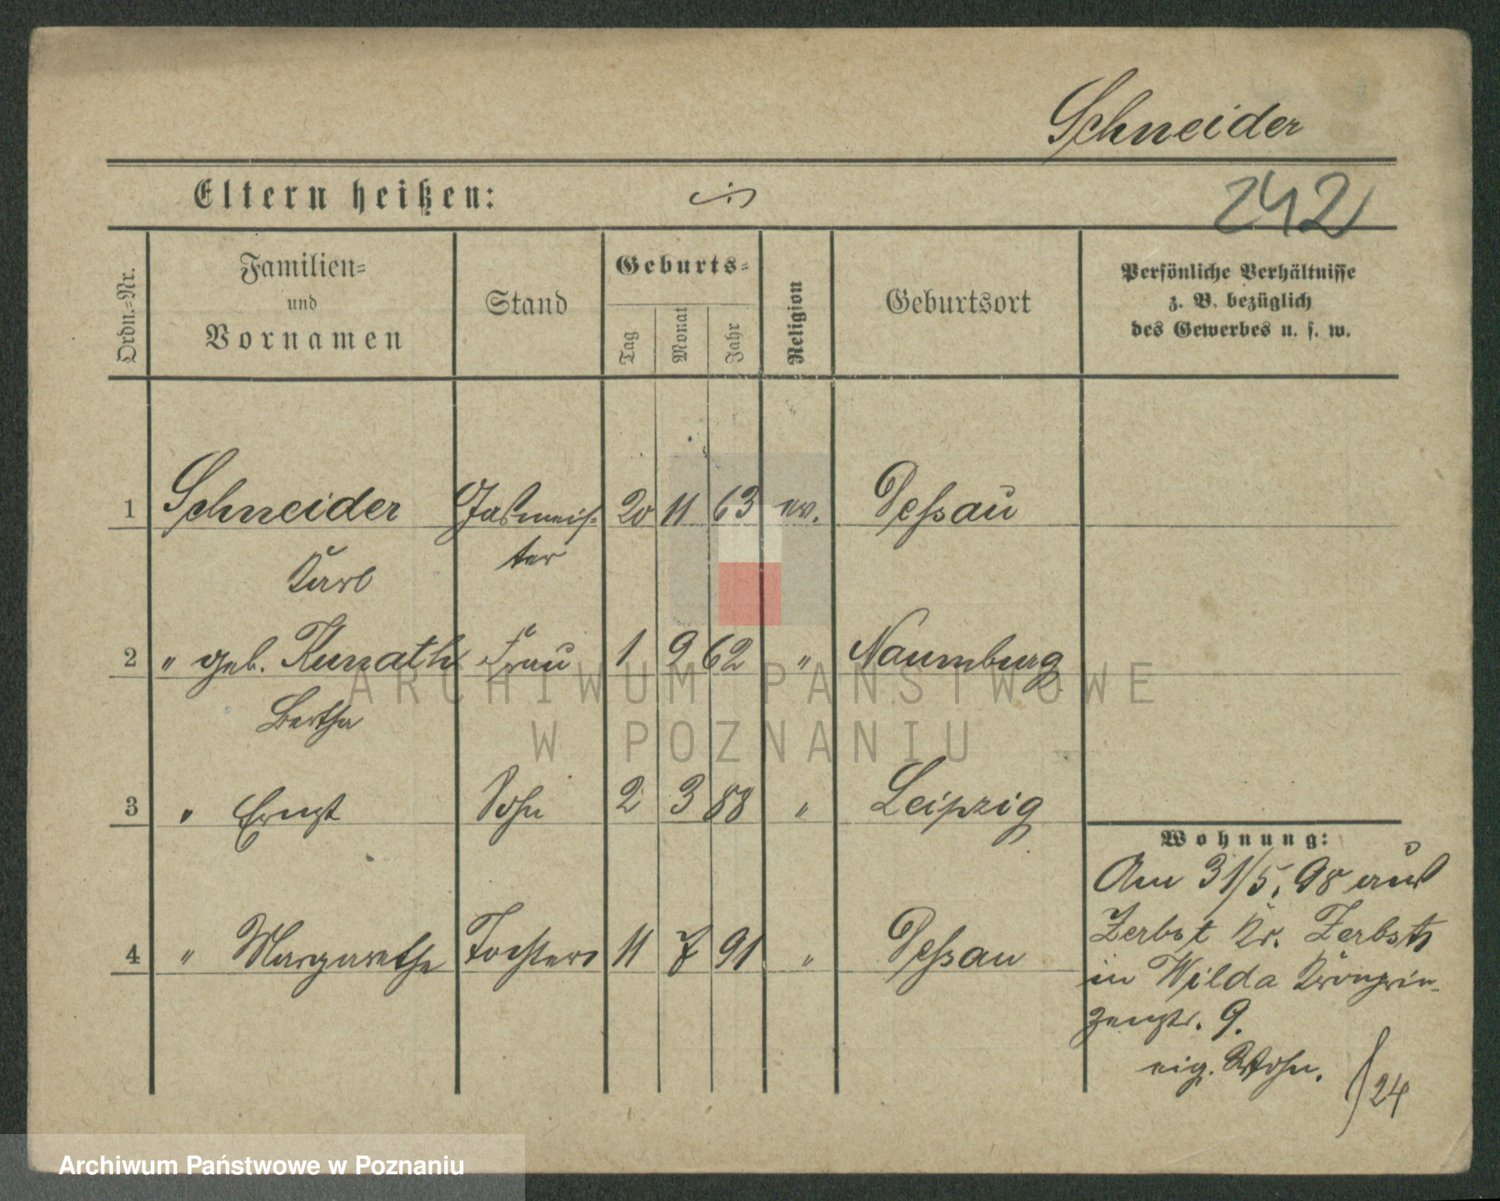 Schneider
Eltern heißen:
242
Ordn.-Nr.
Familien-
und
Vornamen
Stand
Geburts-
Tag
Monat
Jahr
Religion
Geburtsort
Persönliche Verhältnisse
z. B. bezüglich
des Gewerbes u. s. w.
1 Schneider 20 11 63 ev. Dessau
Karl ter
2 " geb. Kunath Frau 1 9 62 " Naumburg
Bertha
3 " Ernst Sohn 2 3 88 " Leipzig
4 " Margarethe Tochter 11 7 91 " Dessau
Wohnung:
Am 31/5. 98 aus
Zerbst Kr. Zerbst
in Wilda Kronprin-
zenstr. 9.
eig. Wohn.
24
ARCHIWUM PAŃSTWOWE
W POZNANIU
Archiwum Państwowe w Poznaniu